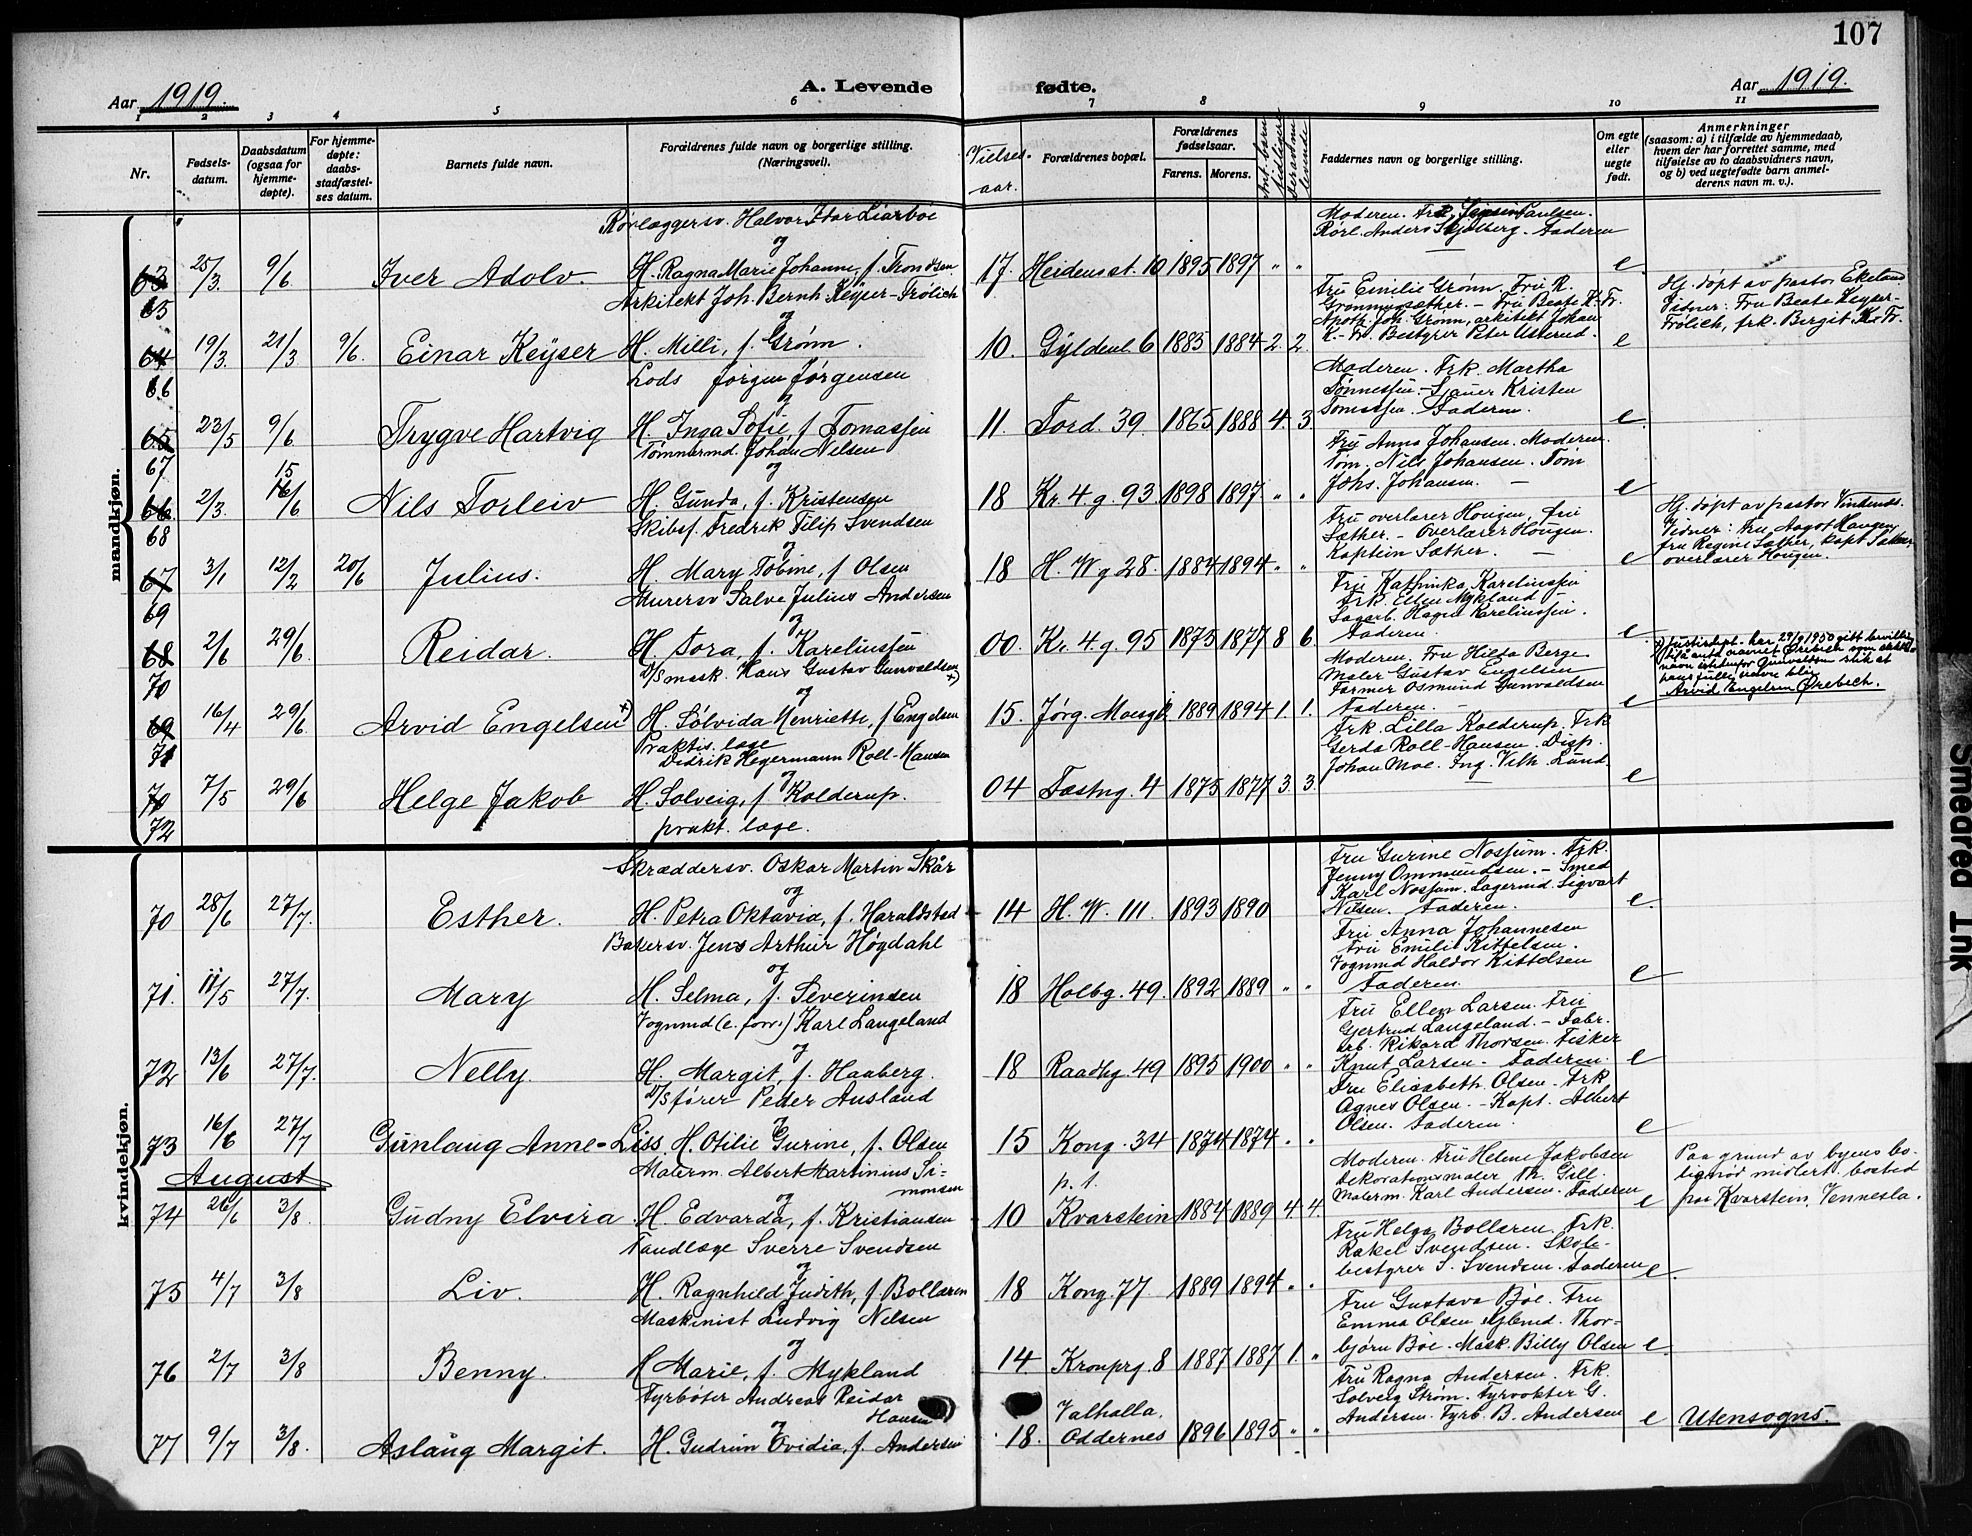 107
Aar 1919.
A. Levende
fødte.
Aar 1919.
1 2 3 4 5 6 7 8 9 10 11
Nr.
Fødsels-
datum.
Daabsdatum
(ogsaa for
hjemme-
døpte).
For hjemme-
døpte:
daabs-
stadfæstel-
ses datum.
Barnets fulde navn.
Forældrenes fulde navn og borgerlige stilling.
(Næringsvei).
Vielses-
aar.
Forældrenes bopæl.
Forældrenes
fødselsaar.
Farens. Morens.
Ant. barn
tidligere
derav nu
levende
Faddernes navn og borgerlige stilling.
Om egte
eller
uegte
født.
Anmerkninger
(saasom: a) i tilfælde av hjemmedaab,
hvem der har forrettet samme, med
tilføielse av to daabsvidners navn,
og b) ved uegtefødte barn anmel-
derens navn m. v.).
mandkjøn.
Rørlæggersv. Halvor Idar Liarbøe
og
63 25/3 9/6 Iver Adolv. H. Ragna Marie Johanne, f. Trondsen 17. Heidensst. 10 1895 1897 " " e
65
Moderen. Frk. Paulsen.
Rørl. Anders Skjølberg. Faderen
Arkitekt Joh. Bernh. Keyser-Frølich
og
64 19/3 21/3 9/6. Einar Keyser H. Milli, f. Grønn. 10. Gyldenl. 6 1883 1884 2. 2. e
66
Fru Emilie Grønn, Fru R.
Grønningsæther. - Fru Beate K-Fr.
Apoth. Joh. Grønn, arkitekt Johan
K.-Fr. Bestyrer Peter Usterud.
Hj. døpt av pastor Ekeland
Vidner: Fru Beate Keyser-
Frølich, frk. Birgit K. Fr.
Lods Jørgen Jørgensen
og
65 23/5 9/6 Trygve Hartvig H. Inga Sofie, f. Tomassen 11. Tord. 39. 1865 1888 4. 3. e
67
Moderen. Frk. Martha
Tønnessen. - Sjauer Kristen
Tomassen. Faderen.
Tømmermd. Johan Nilsen
og
66 2/3. 15/6 Nils Torleiv H. Gunda, f. Kristensen 18 Kr. 4 g. 93 1898 1897 " " e
68
Fru Anna Johansen. Moderen.
Tøm. Nils Johansen. Tøm
Johs. Johansen. -
Skibsf. Fredrik Filip Svendsen
og
67 3/1 12/2 20/6 Julius. H. Mary Tobine, f. Olsen 18 H. W g 28. 1884 1894 " " e
69
Fru overlærer Hougen, fru
Sæther. - Overlærer Hougen.
Kaptein Sæther. -
Hj. døpt av pastor
Vidner: Fru Aagot Haugen
fru Regine Sæther, kapt Sæther,
overlærer Hougen.
Murersv Salve Julius Andersen
og
68 2/6 29/6. Reidar. H. Tora, f. Karelinssen 00. Kr. 4. g. 95 1875 1877 8 6. e
70
Fru Kathinka Karelinssen
Frk. Ellen Mykland -
Lagerb. Hagen Karelinssen.
Faderen.
D/S mask. Hans Gustav Gunvaldsen +)
og
69 16/4 29/6. Arvid Engelsen +) H. Sølvida Henriette, f. Engelsen 15. Jørg. Moesg 1889 1894 1. 1. e
71
Moderen. Fru Hilda Berge
Maler Gustav Engelsen
Farmer Osmund Gunvaldsen
Faderen. -
Justisdept. har 29/9 1950 gitt bevilling
til å anta navnet Ørebech som slekts-
navn istedenfor Gunvaldsen slik at
hans fulle navn blir
Arvid Engelsen Ørebech.
Praktis. læge
Didrik Hegermann Roll-Hansen
og
70 7/5 29/6 Helge Jakob H. Solveig, f. Kolderup. 04 Fæstng. 4 1875 1877 3. 3. e
72 prakt. læge.
Frk. Lilla Kolderup. Frk
Gerda Roll-Hansen. Disp.
Johan Moe. Ing. Vilh. Lund
kvindekjøn.
Skræddersv. Oskar Martin Skår
og
70 28/6 27/7. Esther. H. Petra Oktavia, f. Haraldstad 14 H. W. 111. 1893 1890 e.
Fru Gurine Nossum. Frk.
Jenny Ommundsen. - Smed
Karl Nossum. Lagermd. Sigvart
Nilsen. Faderen.
Bakersv. Jens Arthur Høgdahl
og
71. 11/5 27/7. Mary H. Selma, f. Severinsen 18 Holbg. 49. 1892 1889 " " e
Fru Anna Johannesen
Fru Emilie Kittelsen.
Vognmd Haldor Kittelsen
Faderen.
Vognmd (e. forr.) Karl Langeland
og
72 13/6 27/7. Nelly. H. Margit, f. Haaberg. 18 Raadhg. 49 1895 1900 " " e
Fru Ellen Larsen. Fru
Gjertrud Langeland. - Fabr.
arb. Rikard Thorsen. Fisker
Knut Larsen - Faderen.
D/S fører Peder Ausland
og
73 16/6 27/7 Gunlaug Anne-Liss. H. Otilie Gurine, f. Olsen 15 Kong. 34 1874 1874 " " e
Fru Elisabeth Olsen. Frk
Agnes Olsen. - Kapt. Albert
Olsen. Faderen.
August
Malerm. Albert Martinius Si-
monsen
og
p. t.
74 26/6 3/8. Gudny Elvira H. Edvarda, f. Kristiansen 10 Kvarstein 1884 1889 4. 4. e
Moderen. Fru Helene Jakobsen
Dekorationsmaler Th. Gill.
Malerm. Karl Andersen. Faderen
Paa grund av byens bo-
lignød midlert. bosted
paa Kvarstein, Vennesla.
Tandlæge Sverre Svendsen
og
75 4/7 3/8 Liv. H. Ragnhild Judith, f. Bollæren 18 Kong. 77. 1889 1894 " " e.
Fru Helga Bollæren. Frk.
Rakel Svendsen. Skole-
bestyrer S. Svendsen. Faderen
Maskinist Ludvig Nilsen
og
76 2/7 3/8 Benny. H Marie, f. Mykland 14. Kronprg. 8 1887 1887 1. " e.
Fru Gustava Bøe. Fru
Emma Olsen Thor-
bjørn Bøe. Mask. Billy Olsen
Fyrbøter Andreas Reidar
Hansen
og
77 9/7 3/8. Aslaug Margit. H. Gudrun Ovidia, f. Andersen 18. Valhalla, Oddernes 1896 1895 " " e
Fru Ragna Andersen. Frk.
Solveig Strøm. Fyrvokter G.
Andersen. Fyrb. B. Andersen
Utensogns.
Smeared Ink